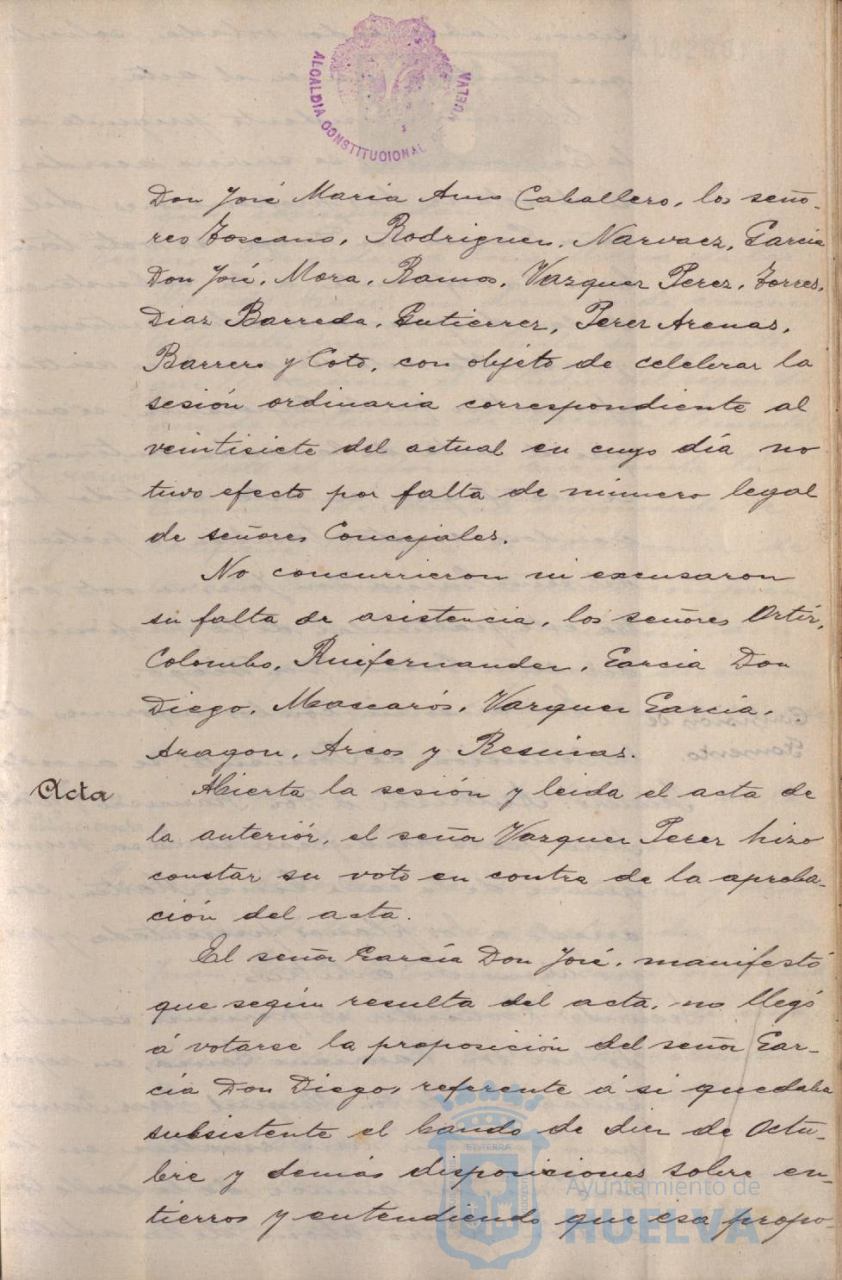 ALCALDIA CONSTITUCIONAL HUELVA
Don José Maria Amo Caballero, los seño-
res Toscano, Rodriguez, Narvaez, Garcia
Don José, Mora, Ramos, Vazquez Perez, Torres,
Diaz Barreda, Gutierrez, Perez Arenas,
Barrero y Coto, con objeto de celebrar la
sesión ordinaria correspondiente al
veintisiete del actual en cuyo día no
tuvo efecto por falta de número legal
de señores Concejales.
No concurrieron ni excusaron
su falta de asistencia, los señores Ortiz,
Colombo, Ruifernandez, Garcia Don
Diego, Mascarós, Vazquez Garcia,
Aragon, Arcos y Resinas.
Acta
Abierta la sesión y leida el acta de
la anteriór, el señor Vazquez Perez hizo
constar su voto en contra de la aproba-
ción del acta.
El señor García Don José, manifestó
que según resulta del acta, no llegó
á votarse la proposición del señor Gar-
cía Don Diego, referente á si quedaba
subsistente el bando de diez de Octu-
bre y demás disposiciones sobre en-
tierros y entendiendo que esa propo-
Ayuntamiento de
HUELVA